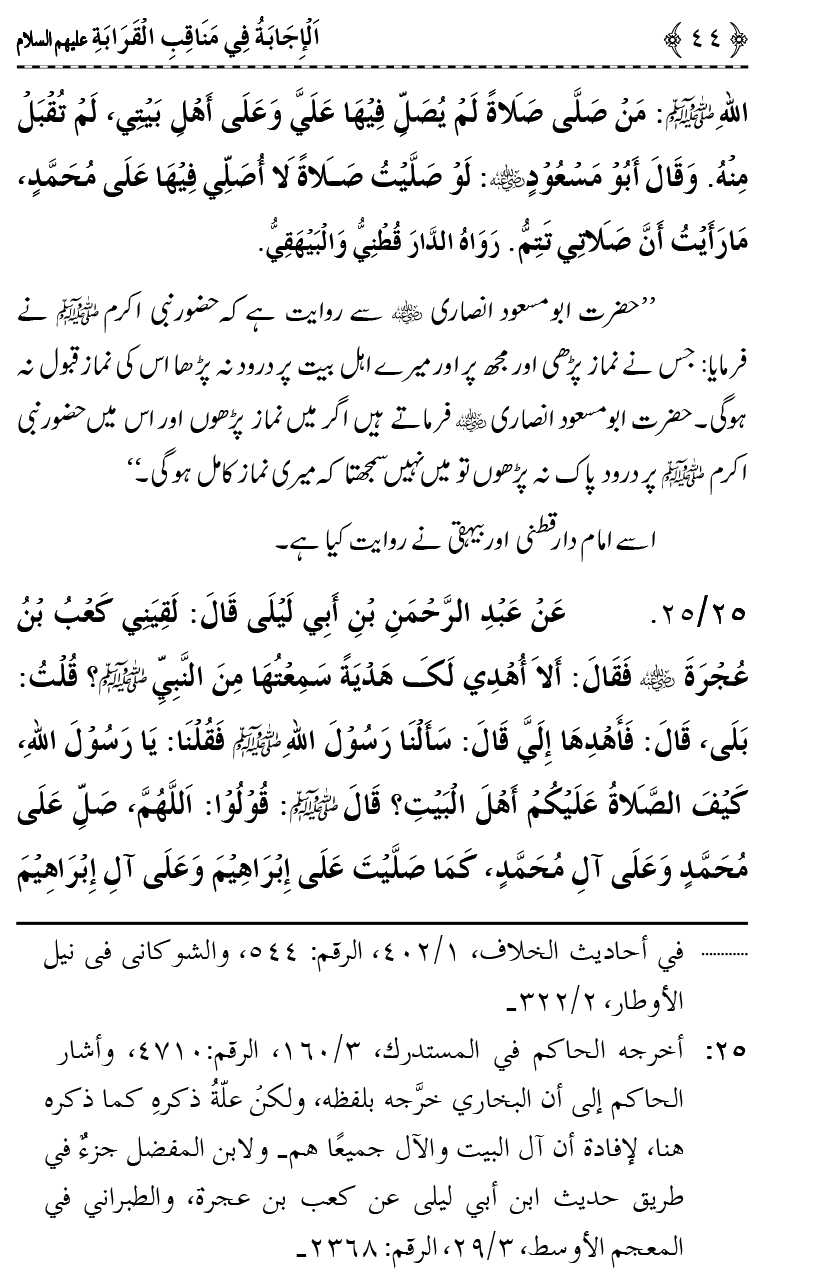 ﴿٤٤﴾ اَلْإِجَابَةُ فِي مَنَاقِبِ الْقَرَابَةِ علیہم السلام
اللهِ ﷺ: مَنْ صَلَّی صَلَاةً لَمْ يُصَلِّ فِيْهَا عَلَيَّ وَعَلَی أَهْلِ بَيْتِي، لَمْ تُقْبَلْ
مِنْهُ. وَقَالَ أَبُوْ مَسْعُوْدٍ رضی اللہ عنہ: لَوْ صَلَّيْتُ صَـلَاةً لَا أُصَلِّي فِيْهَا عَلَی مُحَمَّدٍ،
مَارَأَيْتُ أَنَّ صَلَاتِي تَتِمُّ. رَوَاهُ الدَّارَ قُطْنِيُّ وَالْبَيْهَقِيُّ.
’’حضرت ابو مسعود انصاری رضی اللہ عنہ سے روایت ہے کہ حضور نبی اکرم ﷺ نے
فرمایا: جس نے نماز پڑھی اور مجھ پر اور میرے اہل بیت پر درود نہ پڑھا اس کی نماز قبول نہ
ہوگی۔ حضرت ابو مسعود انصاری رضی اللہ عنہ فرماتے ہیں اگر میں نماز پڑھوں اور اس میں حضور نبی
اکرم ﷺ پر درود پاک نہ پڑھوں تو میں نہیں سمجھتا کہ میری نماز کامل ہوگی۔‘‘
اسے امام دارقطنی اور بیہقی نے روایت کیا ہے۔
٢٥/٢٥. عَنْ عَبْدِ الرَّحْمَنِ بْنِ أَبِي لَيْلَی قَالَ: لَقِيَنِي کَعْبُ بْنُ
عُجْرَةَ رضی اللہ عنہ فَقَالَ: أَلاَ أُهْدِي لَکَ هَدْيَةً سَمِعْتُهَا مِنَ النَّبِيِّ ﷺ؟ قُلْتُ:
بَلَی، قَالَ: فَأَهْدِهَا إِلَيَّ قَالَ: سَأَلْنَا رَسُوْلَ اللهِ ﷺ فَقُلْنَا: يَا رَسُوْلَ اللهِ،
کَيْفَ الصَّلَاةُ عَلَيْکُمْ أَهْلَ الْبَيْتِ؟ قَالَ ﷺ: قُوْلُوْا: اَللَّهُمَّ، صَلِّ عَلَی
مُحَمَّدٍ وَعَلَی آلِ مُحَمَّدٍ، کَمَا صَلَّيْتَ عَلَی إِبْرَاهِيْمَ وَعَلَی آلِ إِبْرَاهِيْمَ
............ في أحاديث الخلاف، ١/٤٠٢، الرقم: ٥٤٤، والشوکانی فی نيل
الأوطار، ٢/٣٢٢۔
٢٥: أخرجه الحاکم في المستدرك، ٣/١٦٠، الرقم: ٤٧١٠، وأشار
الحاکم إلی أن البخاري خرَّجه بلفظه، ولکنْ علّةُ ذکرهِ کما ذکره
هنا، لإفادة أن آل البيت والآل جميعًا هم۔ ولابن المفضل جزءٌ في
طريق حديث ابن أبي ليلی عن کعب بن عجرة، والطبراني في
المعجم الأوسط، ٣/٢٩، الرقم: ٢٣٦٨۔